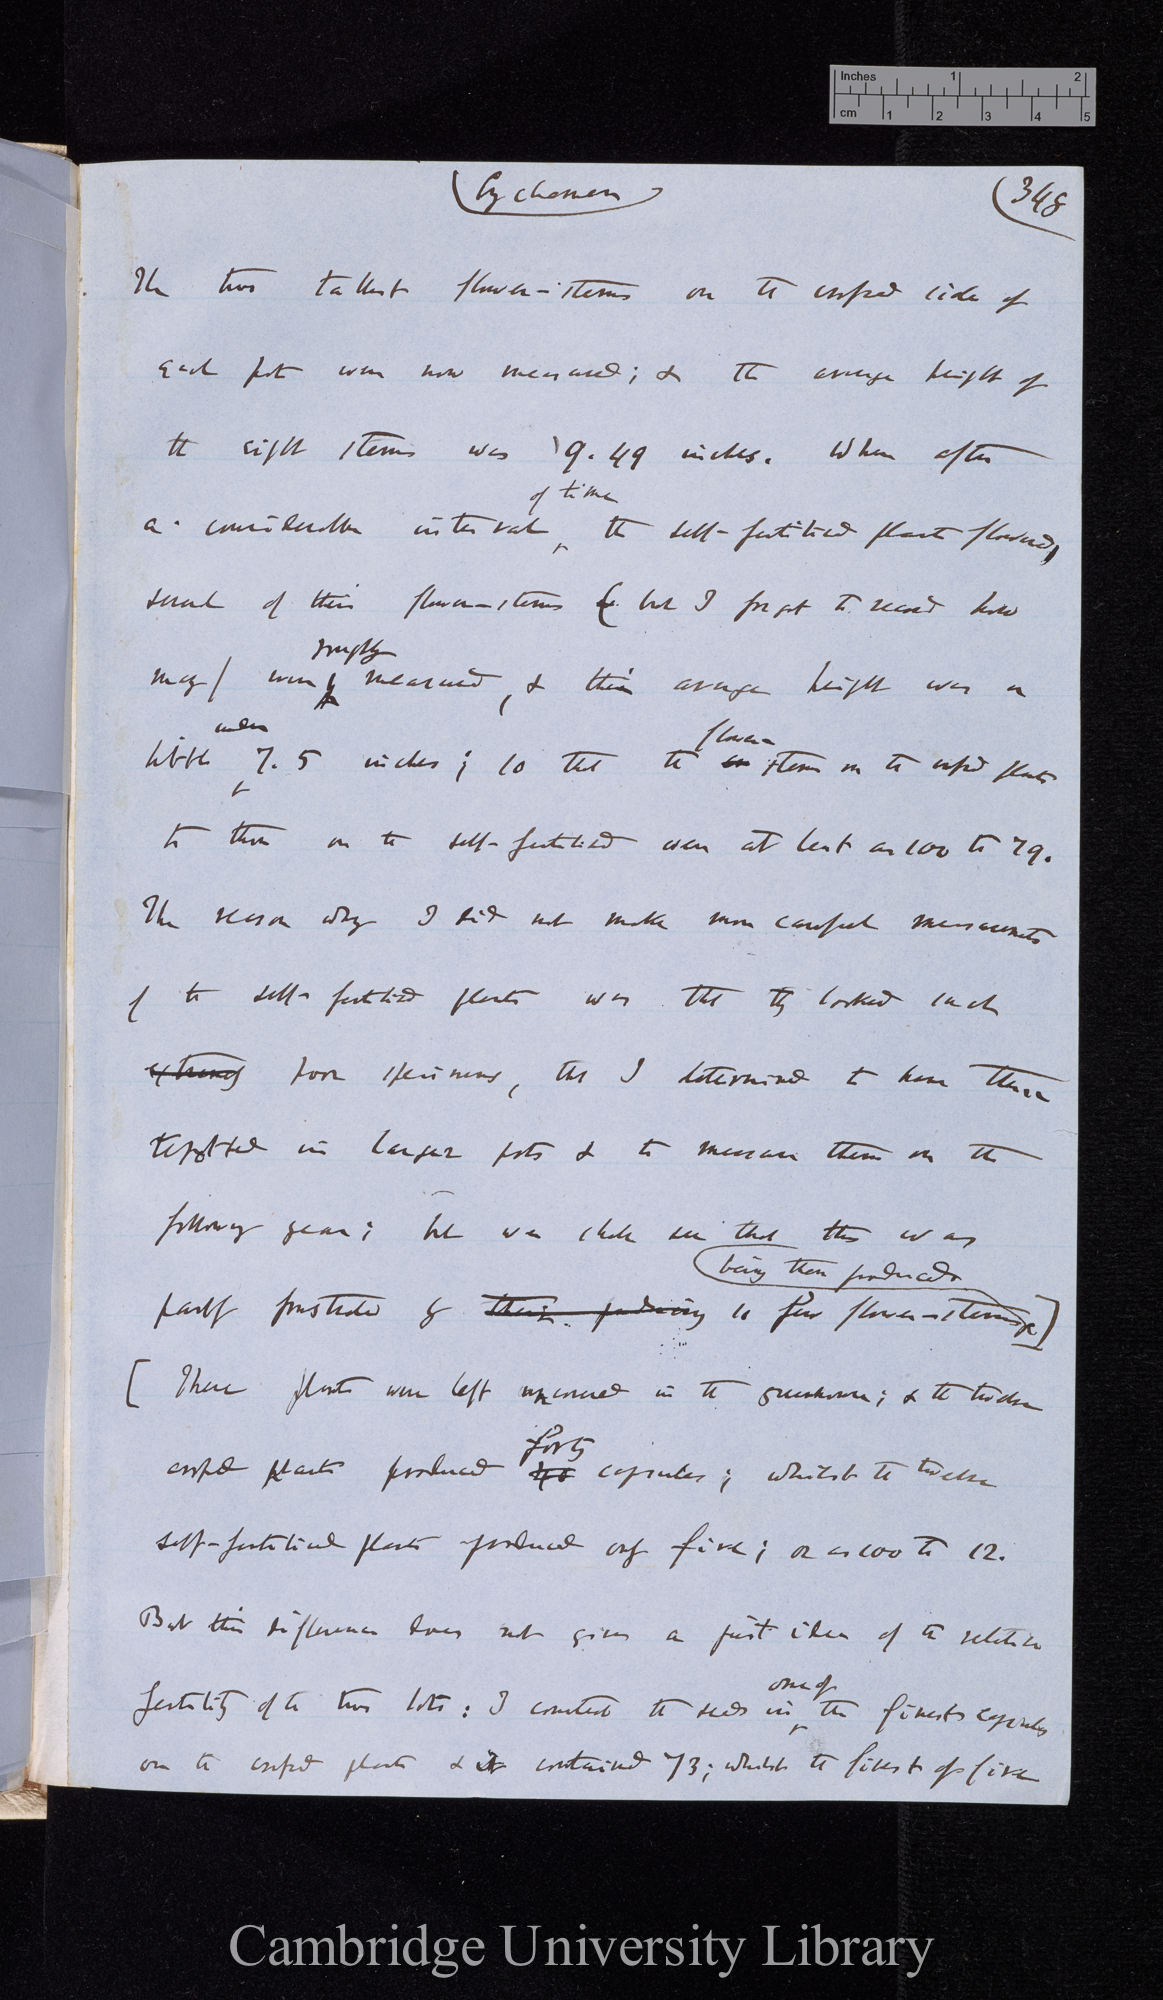 Inches 1 2
cm 1 2 3 4 5
Cyclamen
348
The two tallest flower-stems on the crossed side of
each pot were now measured; & the average height of
the eight stems was 9.49 inches. When after
of time
a considerable interval, the self-fertilised plants flowered,
several of their flower-stems (but I forgot to record how
roughly
many) were measured, & their average height was a
under
flower-
little 7.5 inches; so that the stems on the crossed plants
to those on the self-fertilised were at least as 100 to 79.
The reason why I did not make more careful measurements
of the self-fertilised plants was that they looked such
extremely poor specimens, that I determined to have them
repotted in larger pots & to measure them on the
following year; but we shall see that this was
being then produced
partly frustrated by so few flower-stems]
[These plants were left uncovered in the greenhouse; & the twelve
forty
crossed plants produced 40 capsules; whilst the twelve
self-fertilised plants produced only five; or as 100 to 12.
But this difference does not give a just idea of the relative
one of
fertility of the two lots: I counted the seeds in the finest capsules
on the crossed plants & it contained 73; whilst the finest of five
Cambridge University Library